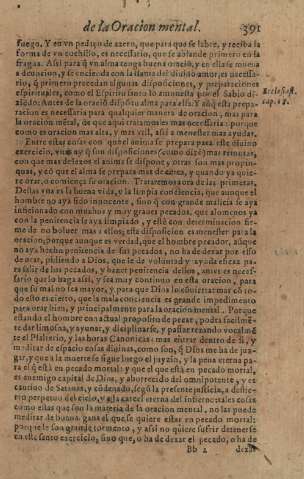 de la Oracion mental. 391
fuego. Y en vn pedaço de azero, que para que se labre, y reciba la
forma de vn cuchillo, es necessario, que se ablande primero en la
fragua. Assi para q̃ vn alma tenga buena oraciõ, y en ella se mueua
a deuocion, y se encienda con la llama del diuino amor, es necessa-
rio, q̃ primero precedan algunas disposiciones, y preparaciones
espirituales, como el Espiritu santo lo amonesta por el Sabio di-
ziẽdo: Antes de la oraciõ dispõ tu alma para ella: Y aũq̃ esta prepa-
Ecclesiast.
cap. 18.
racion es necessaria para qualquier manera de oracion, mas para
la oracion mẽtal, de que aqui tratamos mas necessaria: porque
como es oracion mas alta, y mas vtil, assi a menester mas ayudas.
Entre estas cosas con que el anima se prepara para este diuino
exercicio, vnas ay q̃ son disposiciones (como dizẽ) mas remotas,
con que mas de lexos el anima se dispone, otras son mas propin-
quas, y cõ que el alma se prepara mas de cerca, y quando ya quie-
re orar, o comiença su oracion. Trataremos aora de las primeras.
Destas vna es la buena vida, y la limpia cõsciencia, que aunque el
hombre no aya sido innocente, sino q̃ con grande malicia se aya
inficionado con muchos y muy graues pecados, que alomenos ya
con la penitencia se aya limpiado, y estè con determinacion fir-
me de no boluer mas a ellos; esta disposicion es menester para la
oracion, porque aunque es verdad, que el hombre pecador, aũque
no aya hecho penitencia de sus pecados, no ha de dexar por esso
de orar, pidiendo a Dios, que le dè voluntad y ayuda eficaz pa-
ra salir de los pecados, y hazer penitencia dellos, antes es neces-
sario que lo haga assi, y sea muy continuo en esta oracion, para
que su mal no sea mayor, y para que Dios le
do esto es cierto, que la mala conciencia es grande impedimento
para orar bien, y principalmente para la oracion mental. Porque
estando el hombre con actual proposito de pecar, podra facilmẽ-
te dar limosna, y ayunar, y disciplinarse, y passar rezando vocalmẽ
te el Psalterio, y las horas Canonicas: mas entrar dentro de si, y
meditar de espacio cosas diuinas, como son, q̃ Dios me ha de juz-
gar, y que a la muerte se sigue luego el juyzio, y la pena eterna pa-
ra el q̃ està en pecado mortal: y que el que està en pecado mortal,
es enemigo capital de Dios, y aborrecido del omnipotente, y es
cautiuo de Satanas, y cõdenado, segũ la presente justicia, a destie-
rro perpetuo del cielo, y a la carcel eterna del infierno: tales cosas
como estas que son la materia de la oracion mental, no las puede
meditar de buena gana el que se quiere estar en pecado mortal:
porque le son grande tormento, y assi no quiere sufrir detenerse
en este santo exercicio, sino que, o ha de dexar el pecado, o ha de
Bb 2 dexar